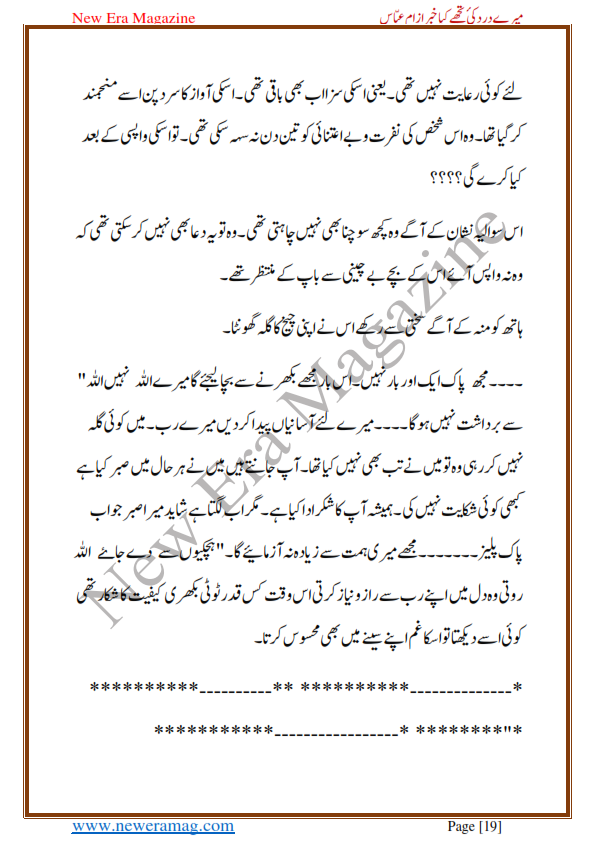 New Era Magazine میرے درد کی تجھے کیا خبر از ام عباس
لئے کوئی رعایت نہیں تھی۔ یعنی اسکی سزا اب بھی باقی تھی۔ اسکی آواز کا سرد پن اسے منجمند
کر گیا تھا۔ وہ اس شخص کی نفرت و بے اعتنائی کو تین دن نہ سہہ سکی تھی۔ تو اسکی واپسی کے بعد
کیا کرے گی؟؟؟؟
اس سوالیہ نشان کے آگے وہ کچھ سوچنا بھی نہیں چاہتی تھی۔ وہ تو یہ دعا بھی نہیں کر سکتی تھی کہ
وہ نہ واپس آئے اس کے بچے بے چینی سے باپ کے منتظر تھے۔
ہاتھ کو منہ کے آگے سختی سے رکھے اس نے اپنی چیخ کا گلہ گھونٹا۔
۔۔۔۔ مجھ پاک ایک اور بار نہیں۔ اس بار مجھے بکھرنے سے بچا لیجئے گا میرے اللہ نہیں اللہ"
سے برداشت نہیں ہو گا۔۔۔۔ میرے لئے آسانیاں پیدا کر دیں میرے رب۔ میں کوئی گلہ
نہیں کر رہی وہ تو میں نے تب بھی نہیں کیا تھا۔ آپ جانتے ہیں میں نے ہر حال میں صبر کیا ہے
کبھی کوئی شکایت نہیں کی۔ ہمیشہ آپ کا شکر ادا کیا ہے۔ مگر اب لگتا ہے شاید میرا صبر جواب
پاک پلیز۔۔۔۔۔۔۔ مجھے میری ہمت سے زیادہ نہ آزمائیے گا۔" ہچکیوں سے دے جائے اللہ
روتی وہ دل میں اپنے رب سے راز و نیاز کرتی اس وقت کس قدر ٹوٹی بکھری کیفیت کا شکار تھی
کوئی اسے دیکھتا تو اسکا غم اپنے سینے میں بھی محسوس کرتا۔
**********----------** **********--------------*
***********-----------------* ********"*
New Era Magazine
www.neweramag.com Page [19]